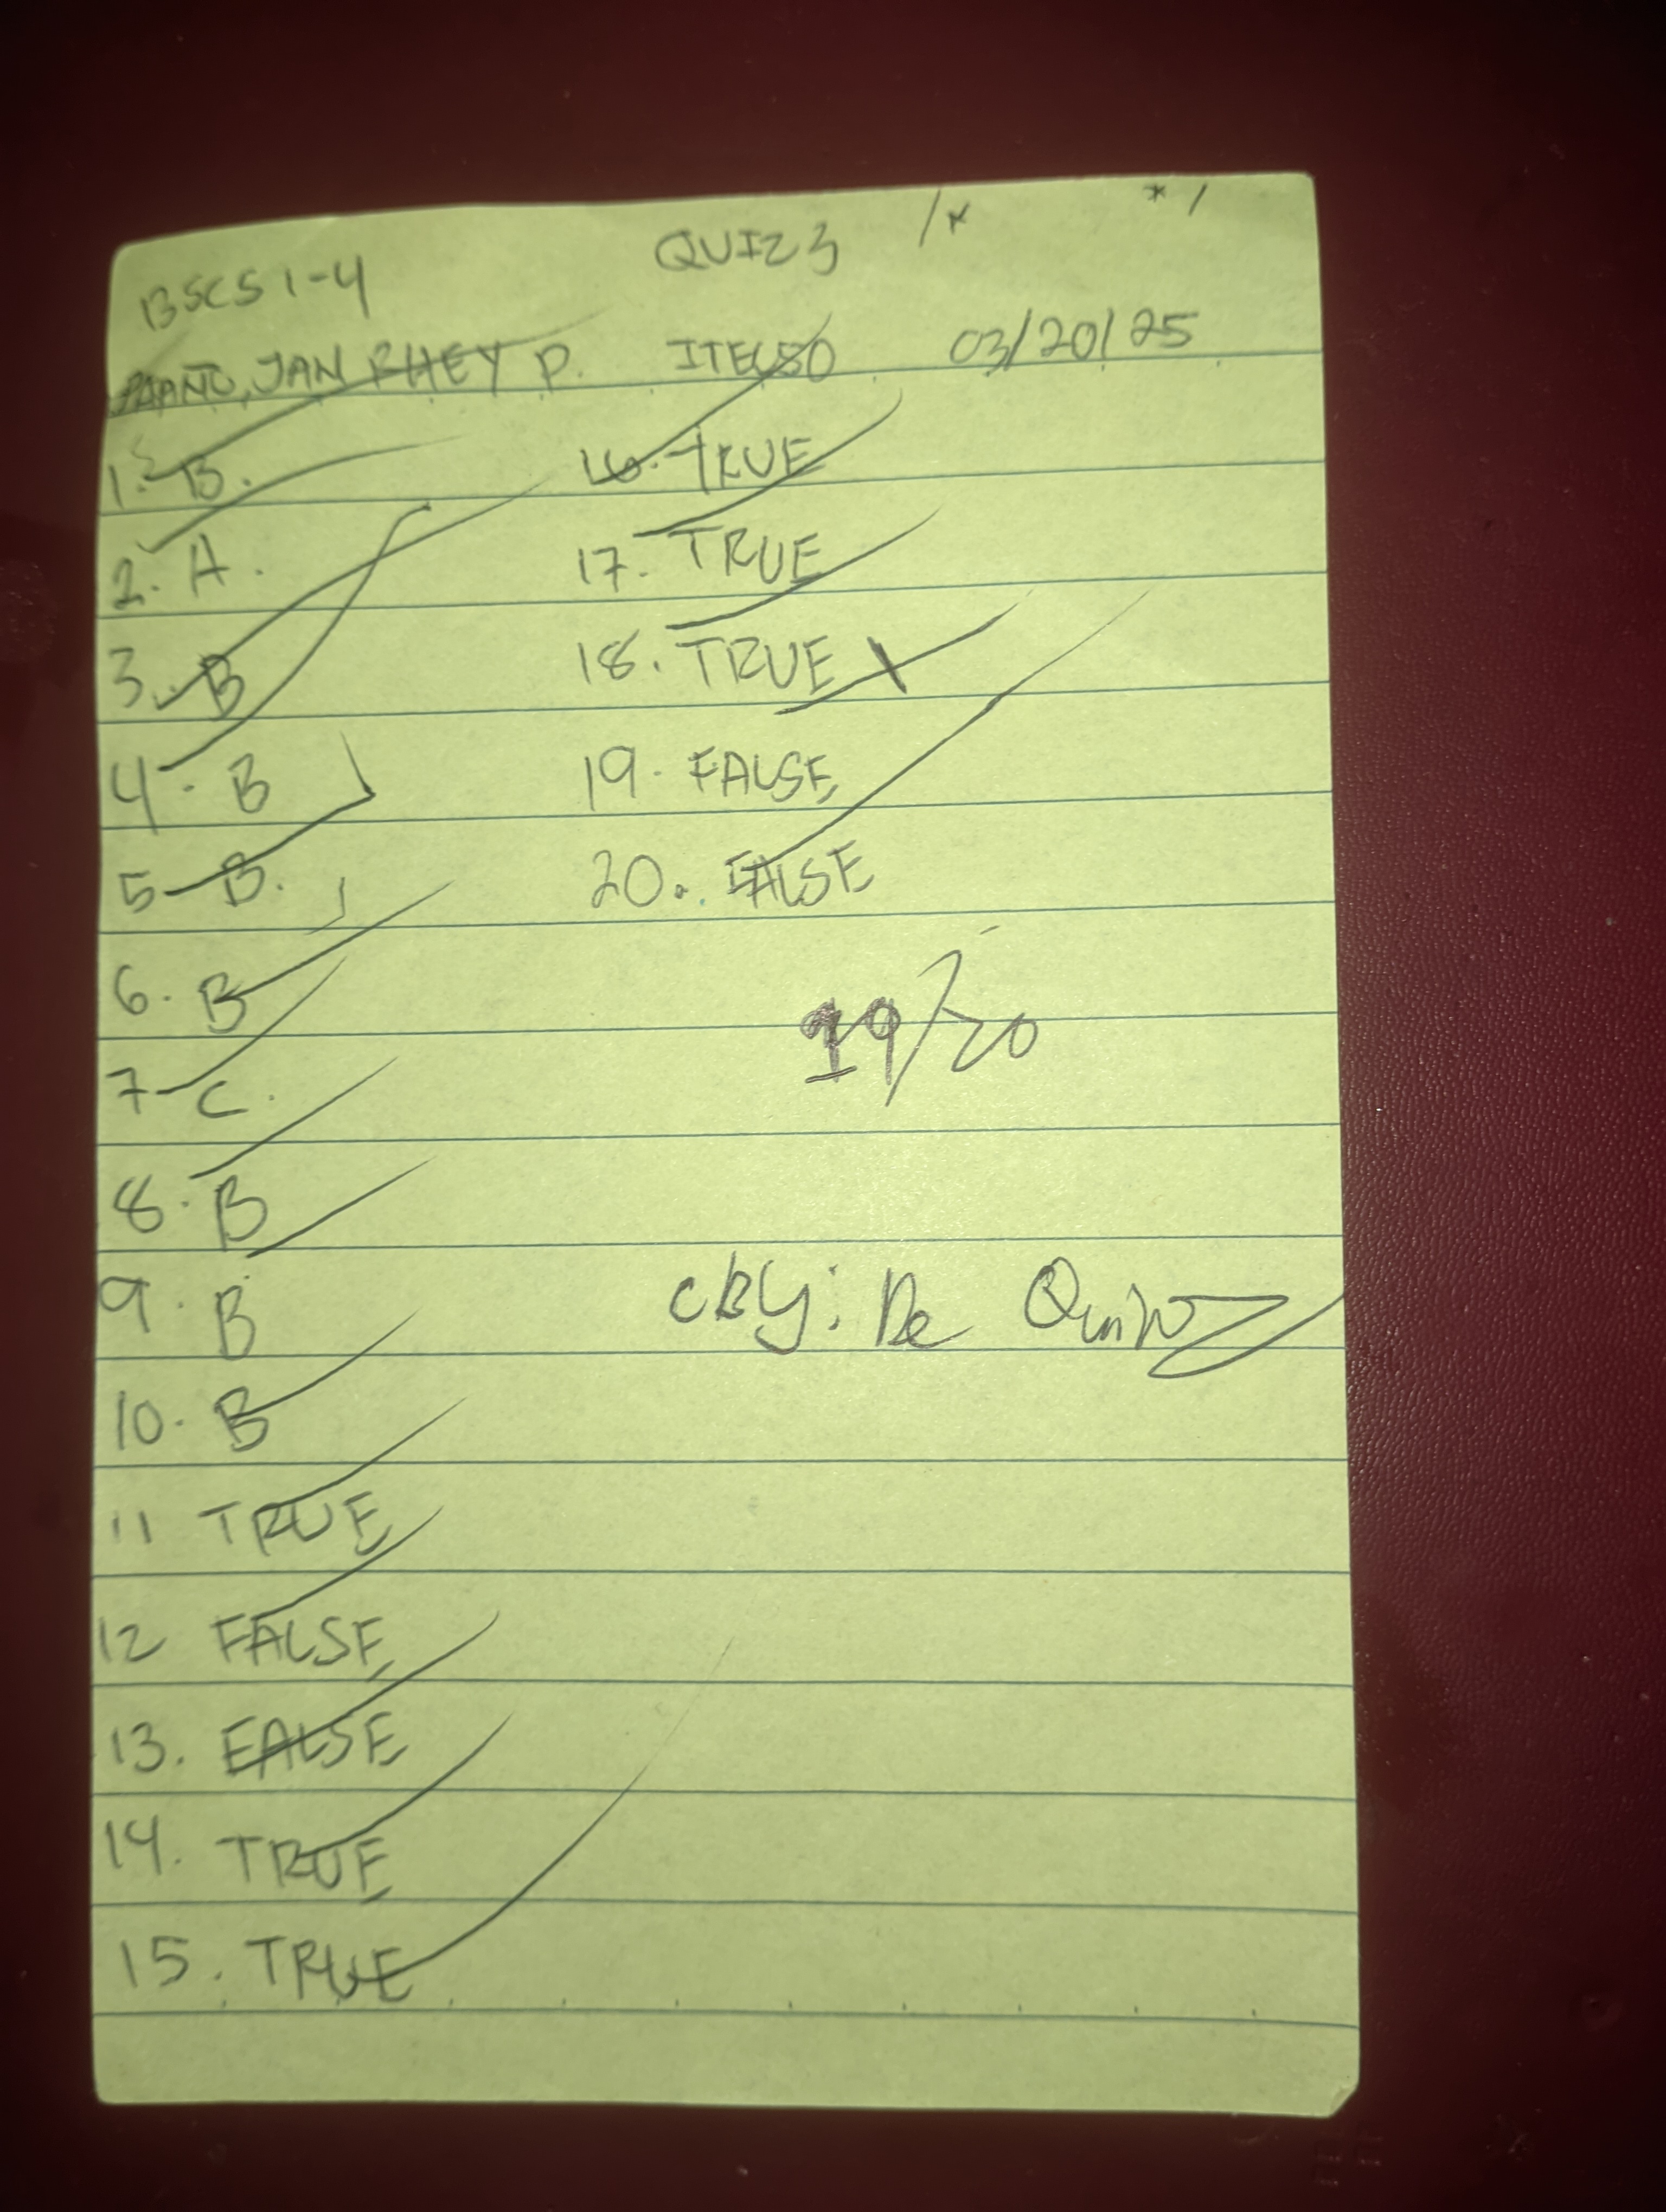 QUIZ 3 /* */
BSCS 1-4
JAN RHEY P. ITEC50 03/20/25
1. B.
2. A.
3. B
4. B
5. B.
6. B
7. C.
8. B
9. B
10. B
11 TRUE
12 FALSE
13. FALSE
14. TRUE
15. TRUE
16. TRUE
17. TRUE
18. TRUE
19. FALSE
20. FALSE
19/20
CBy: De